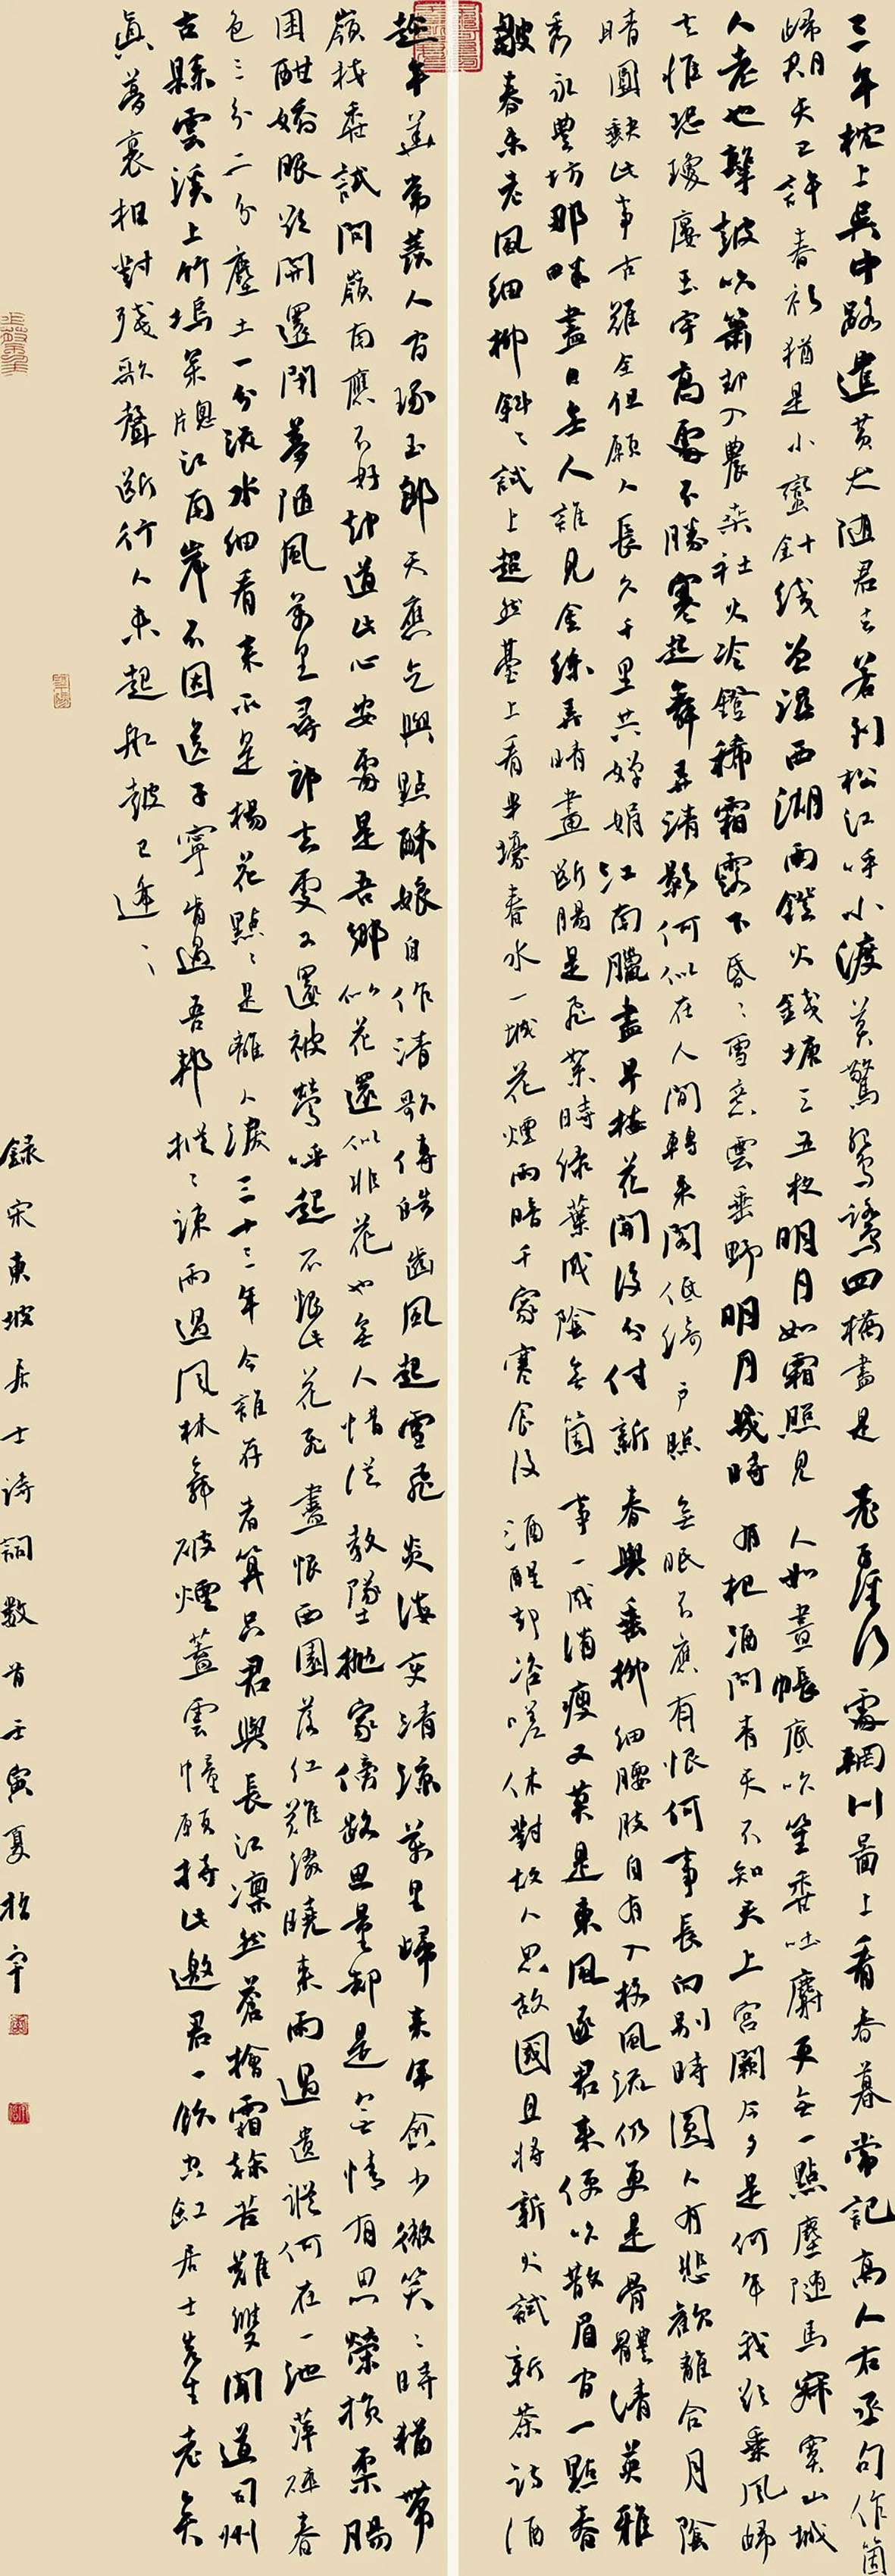 三年枕上吳中路遣黃犬隨君去若到松江呼小渡莫驚鴛鷺四橋盡是老子經行處輞川圖上看春暮常記高人右丞句作箇
歸期天已許春衫猶是小蠻針線曾濕西湖雨燈火錢塘三五夜明月如霜照見人如畫帳底吹笙香吐麝更無一點塵隨馬寂寞山城
人老也擊鼓吹簫却入農桑社火冷燈稀霜露下昏〻雪意雲垂野明月幾時有把酒問青天不知天上宮闕今夕是何年我欲乘風歸
去惟恐瓊廔玉宇高處不勝寒起舞弄清影何似在人間轉朱閣低綺戶照無眠不應有恨何事長向別時圓人有悲歡離合月陰
晴圓缺此事古難全但願人長久千里共嬋娟江南臘盡早梅花開後分付新春與垂柳細腰肢自有入格風流仍更是骨體清英雅
秀永豐坊那畔盡日無人誰見金絲弄晴晝斷腸是飛絮時綠葉成陰無箇事一成消瘦又莫是東風逐君來便吹散眉間一點春
皺春未老風細柳斜〻試上超然臺上看半壕春水一城花煙雨暗千家寒食後酒醒却咨嗟休對故人思故國且將新火試新茶詩酒
趁年華常羨人間琢玉郎天應乞與點酥娘自作清歌傳皓齒風起雪飛炎海變清涼萬里歸來年愈少微笑〻時猶帶
嶺梅香試問嶺南應不好却道此心安處是吾鄉似花還似非花也無人惜從教墜拋家傍路思量却是無情有思縈損柔腸
困酣嬌眼欲開還閉夢隨風萬里尋郎去處又還被鶯呼起不恨此花飛盡恨西園落紅難綴曉來雨過遺蹤何在一池萍碎春
色三分二分塵土一分流水細看來不是楊花點〻是離人淚三十三年今誰存者算只君與長江凜然蒼檜霜榦苦難雙聞道司州
古縣雲溪上竹塢松窗江南岸不因送子寧肯過吾邦摐〻疎雨過風林舞破煙蓋雲幢願持此邀君一飲空缸居士先生老矣
真夢裏相對殘歌聲斷行人未起船鼓已逢〻
録宋東坡居士詩詞數首壬寅夏